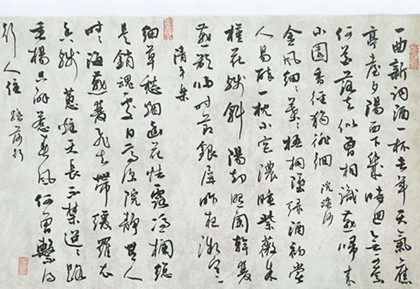 一曲新詞酒一杯去年天氣舊
亭臺夕陽西下幾時回無可奈
何花落去似曾相識燕歸來
小園香徑獨徘徊 浣溪沙
金風細細葉葉梧桐墜綠酒初嘗
人易醉一枕小窗濃睡紫薇朱
槿花殘斜陽却照闌干雙
燕欲歸時節銀屏昨夜微寒
清平樂
細草愁烟幽花怯露憑欄總
是銷魂處日高深院靜無人
時時海燕雙飛去帶緩羅衣
香殘蕙炷天長不禁迢迢路
垂楊只解惹春風何曾繫得
行人住 踏莎行